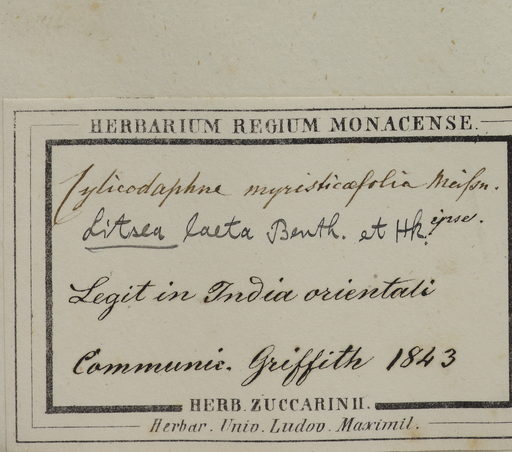 HERBARIUM REGIUM MONACENSE.
Cylicodaphne myristicæfolia Meißn.
ipse.
Litsea laeta Benth. et Hk.
Legit in India orientali
Communic. Griffith 1843
HERB. ZUCCARINII.
Herbar. Univ. Ludov. Maximil.